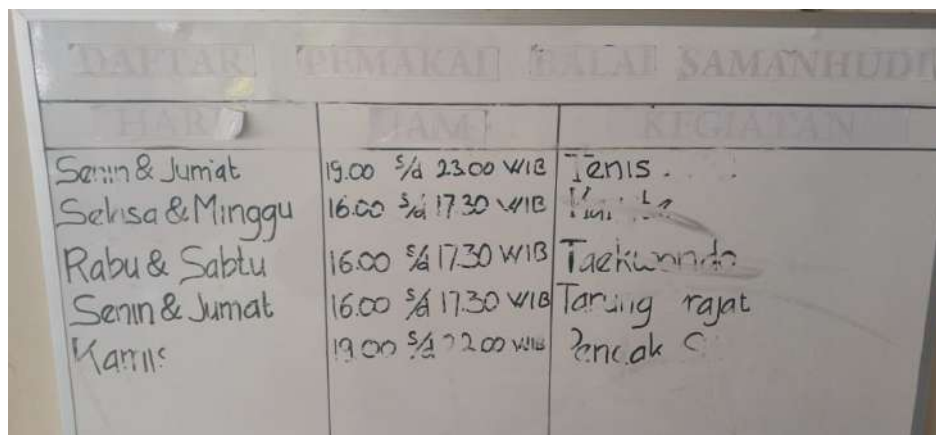 DAFTAR PEMAKAI BALAI SAMANHUDI
HARI JAM KEGIATAN
Senin & Jum'at 19.00 s/d 23.00 WIB Tenis
Selasa & Minggu 16.00 s/d 17.30 WIB
Rabu & Sabtu 16.00 s/d 17.30 WIB Taekwondo
Senin & Jumat 16.00 s/d 17.30 WIB Tarung rajat
Kamis 19.00 s/d 22.00 WIB Pencak